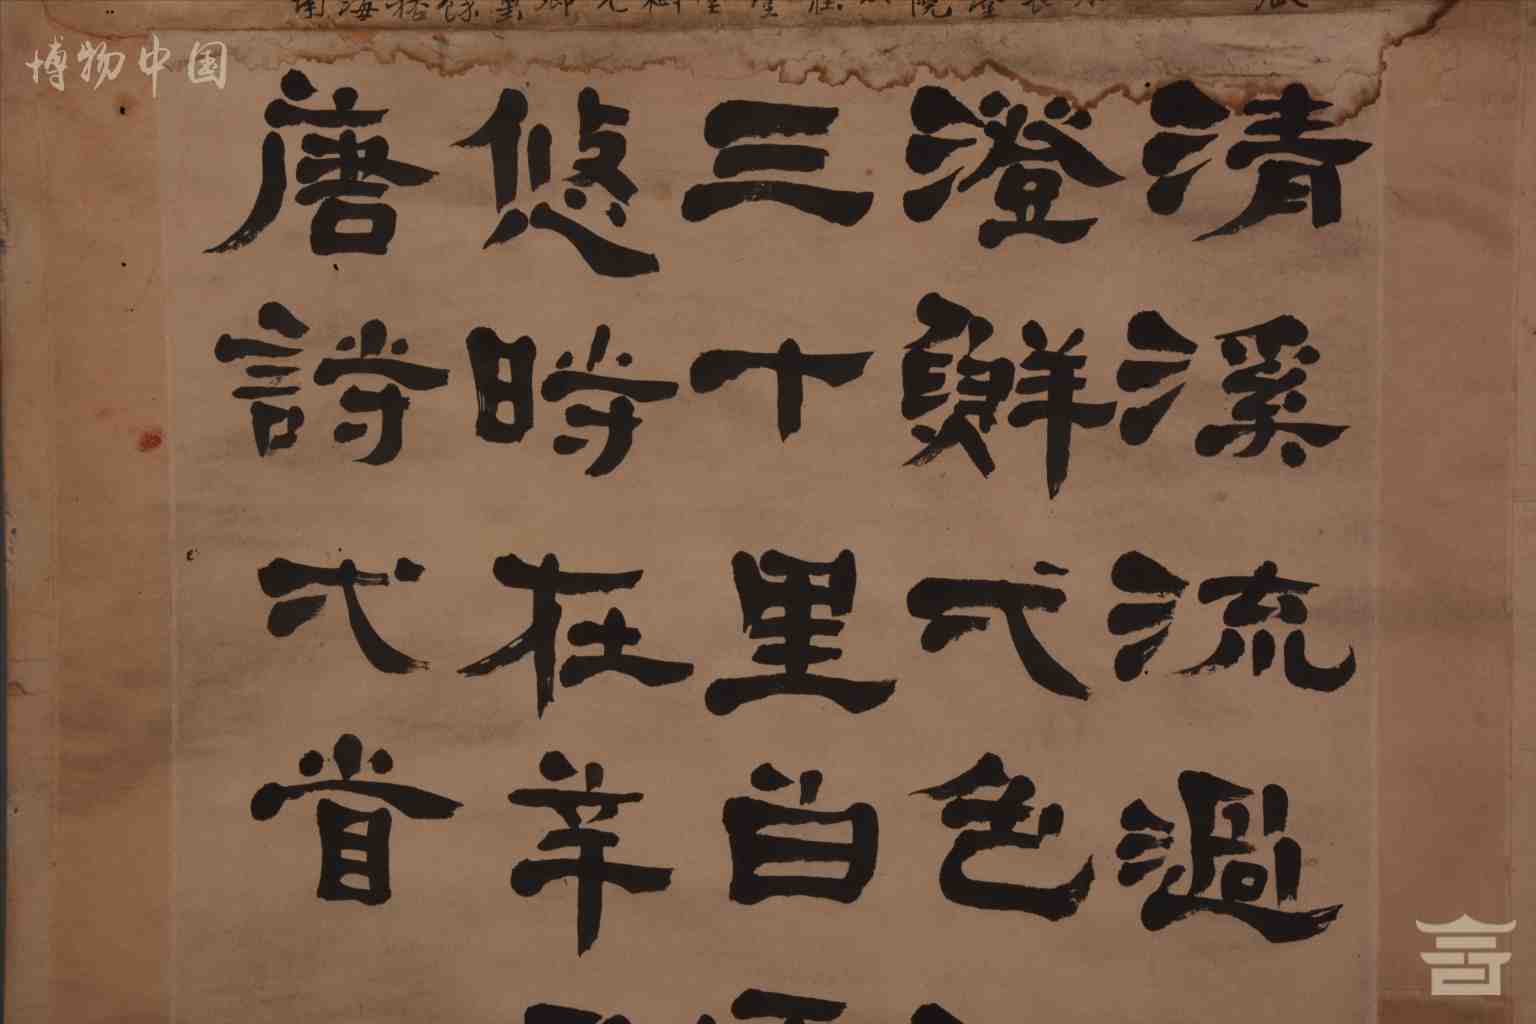 博物中国
清溪流過
澄鮮弌色
三十里白
悠時在辛
唐詩弌首